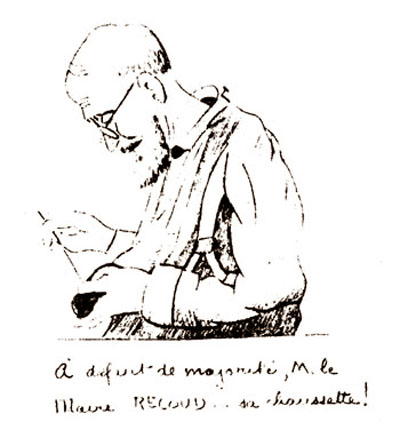 À défaut de majorité, M. le
Maire RECOUD... sa chaussette!